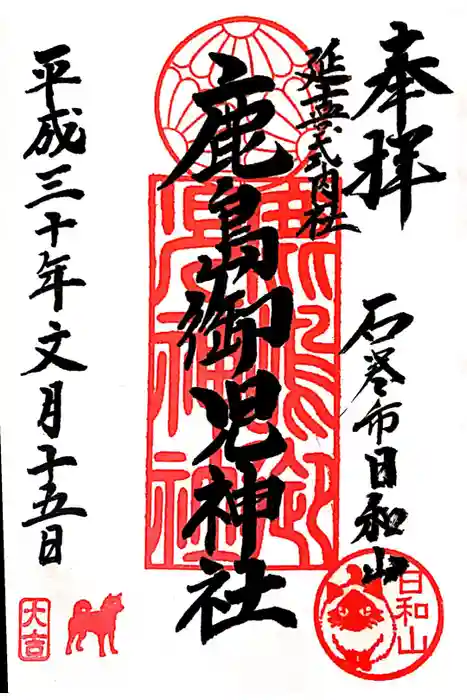 奉拝
石巻市日和山
延喜式内社
鹿島御児神社
平成三十年文月十五日
鹿島御児神社
日和山
大吉